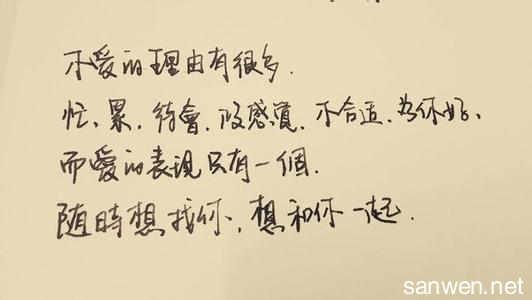 不愛的理由有很多.
忙、累、待會、沒感覺、不合适、為你好、
而愛的表現只有一個.
随時想找你、想和你一起.
sanwen.net